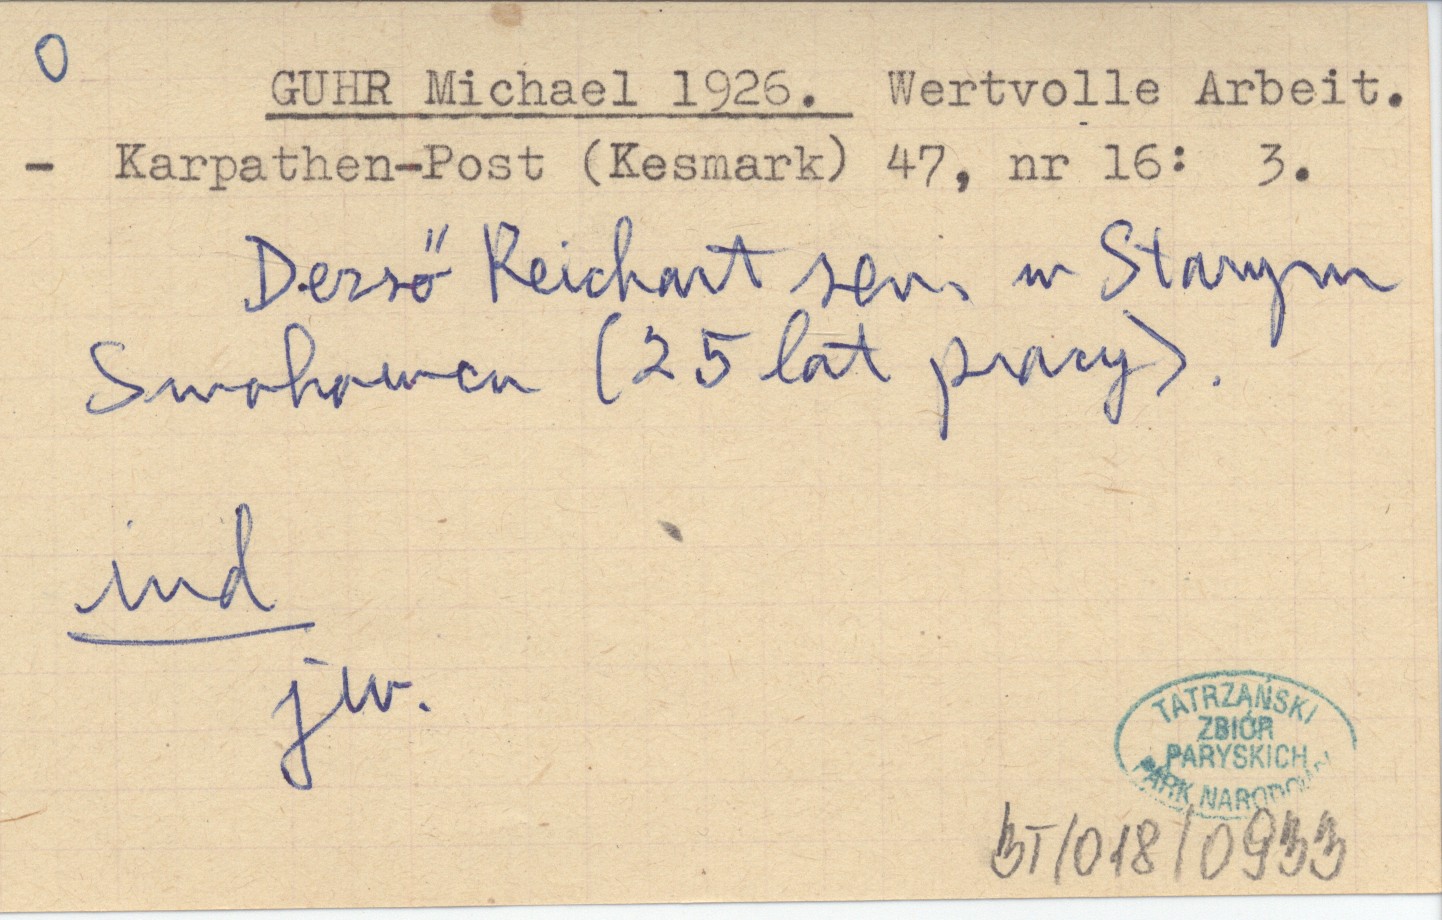 O
GUHR Michael 1926. Wertvolle Arbeit.
- Karpathen-Post (Kesmark) 47, nr 16: 3.
Dezső Reichart sen. w Starym
Smokowcu (25 lat pracy).
ind
jw.
TATRZAŃSKI
ZBIÓR
PARYSKICH
PARK NARODOWY
BT/018/0933